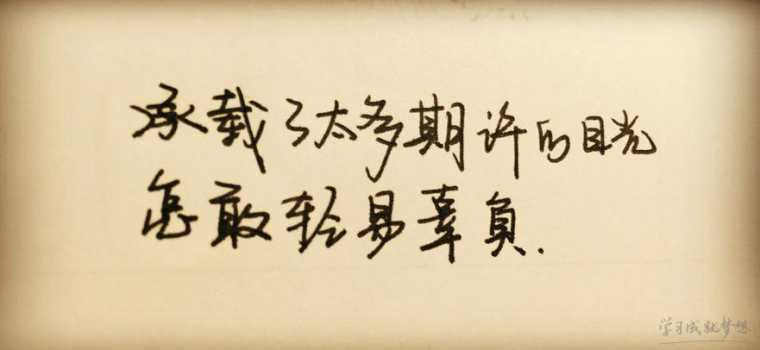 承载了太多期许的目光
怎敢轻易辜负.
学习成就梦想